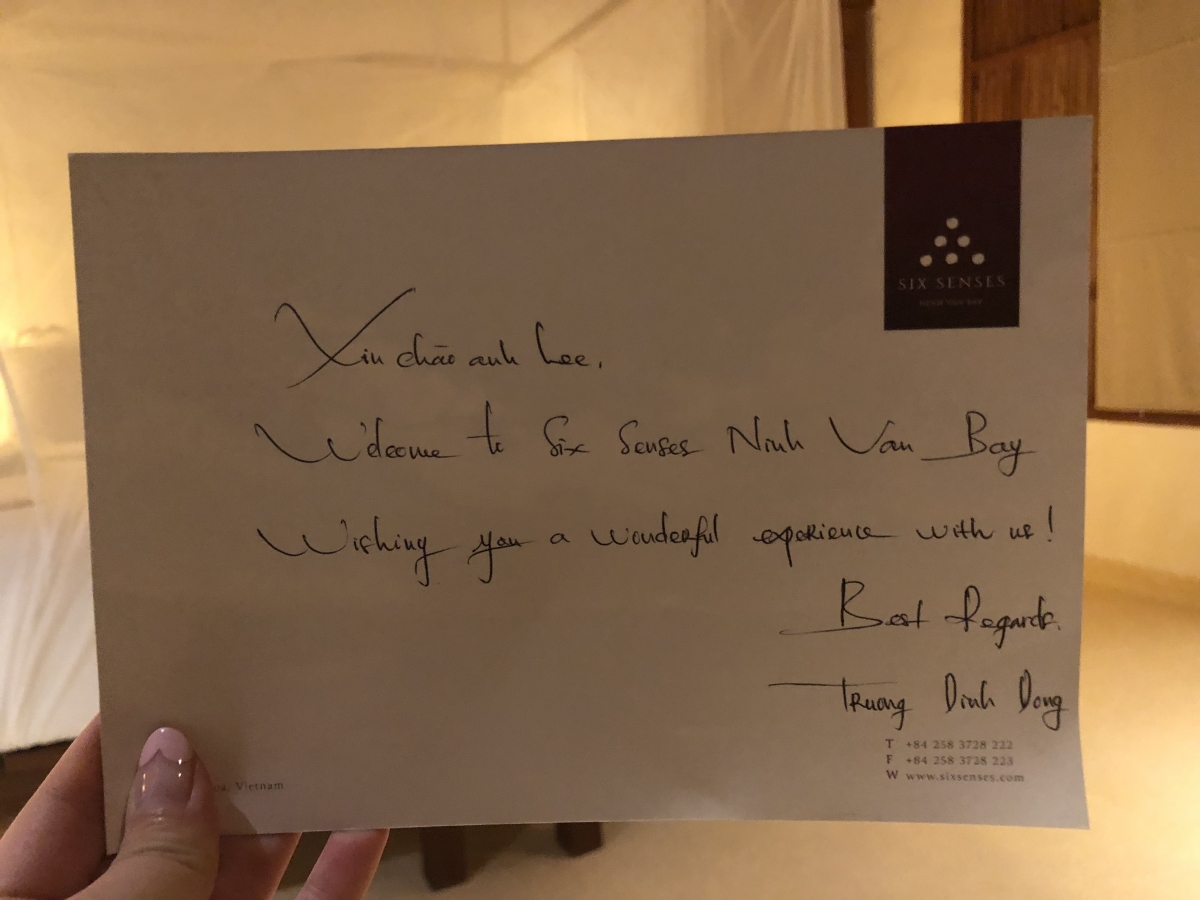 SIX SENSES
NINH VAN BAY
Xin chào anh Lee,
Welcome to Six Senses Ninh Van Bay
Wishing you a wonderful experience with us!
Best Regards.
Truong Dinh Dong
T +84 258 3728 222
F +84 258 3728 223
W www.sixsenses.com
Vietnam